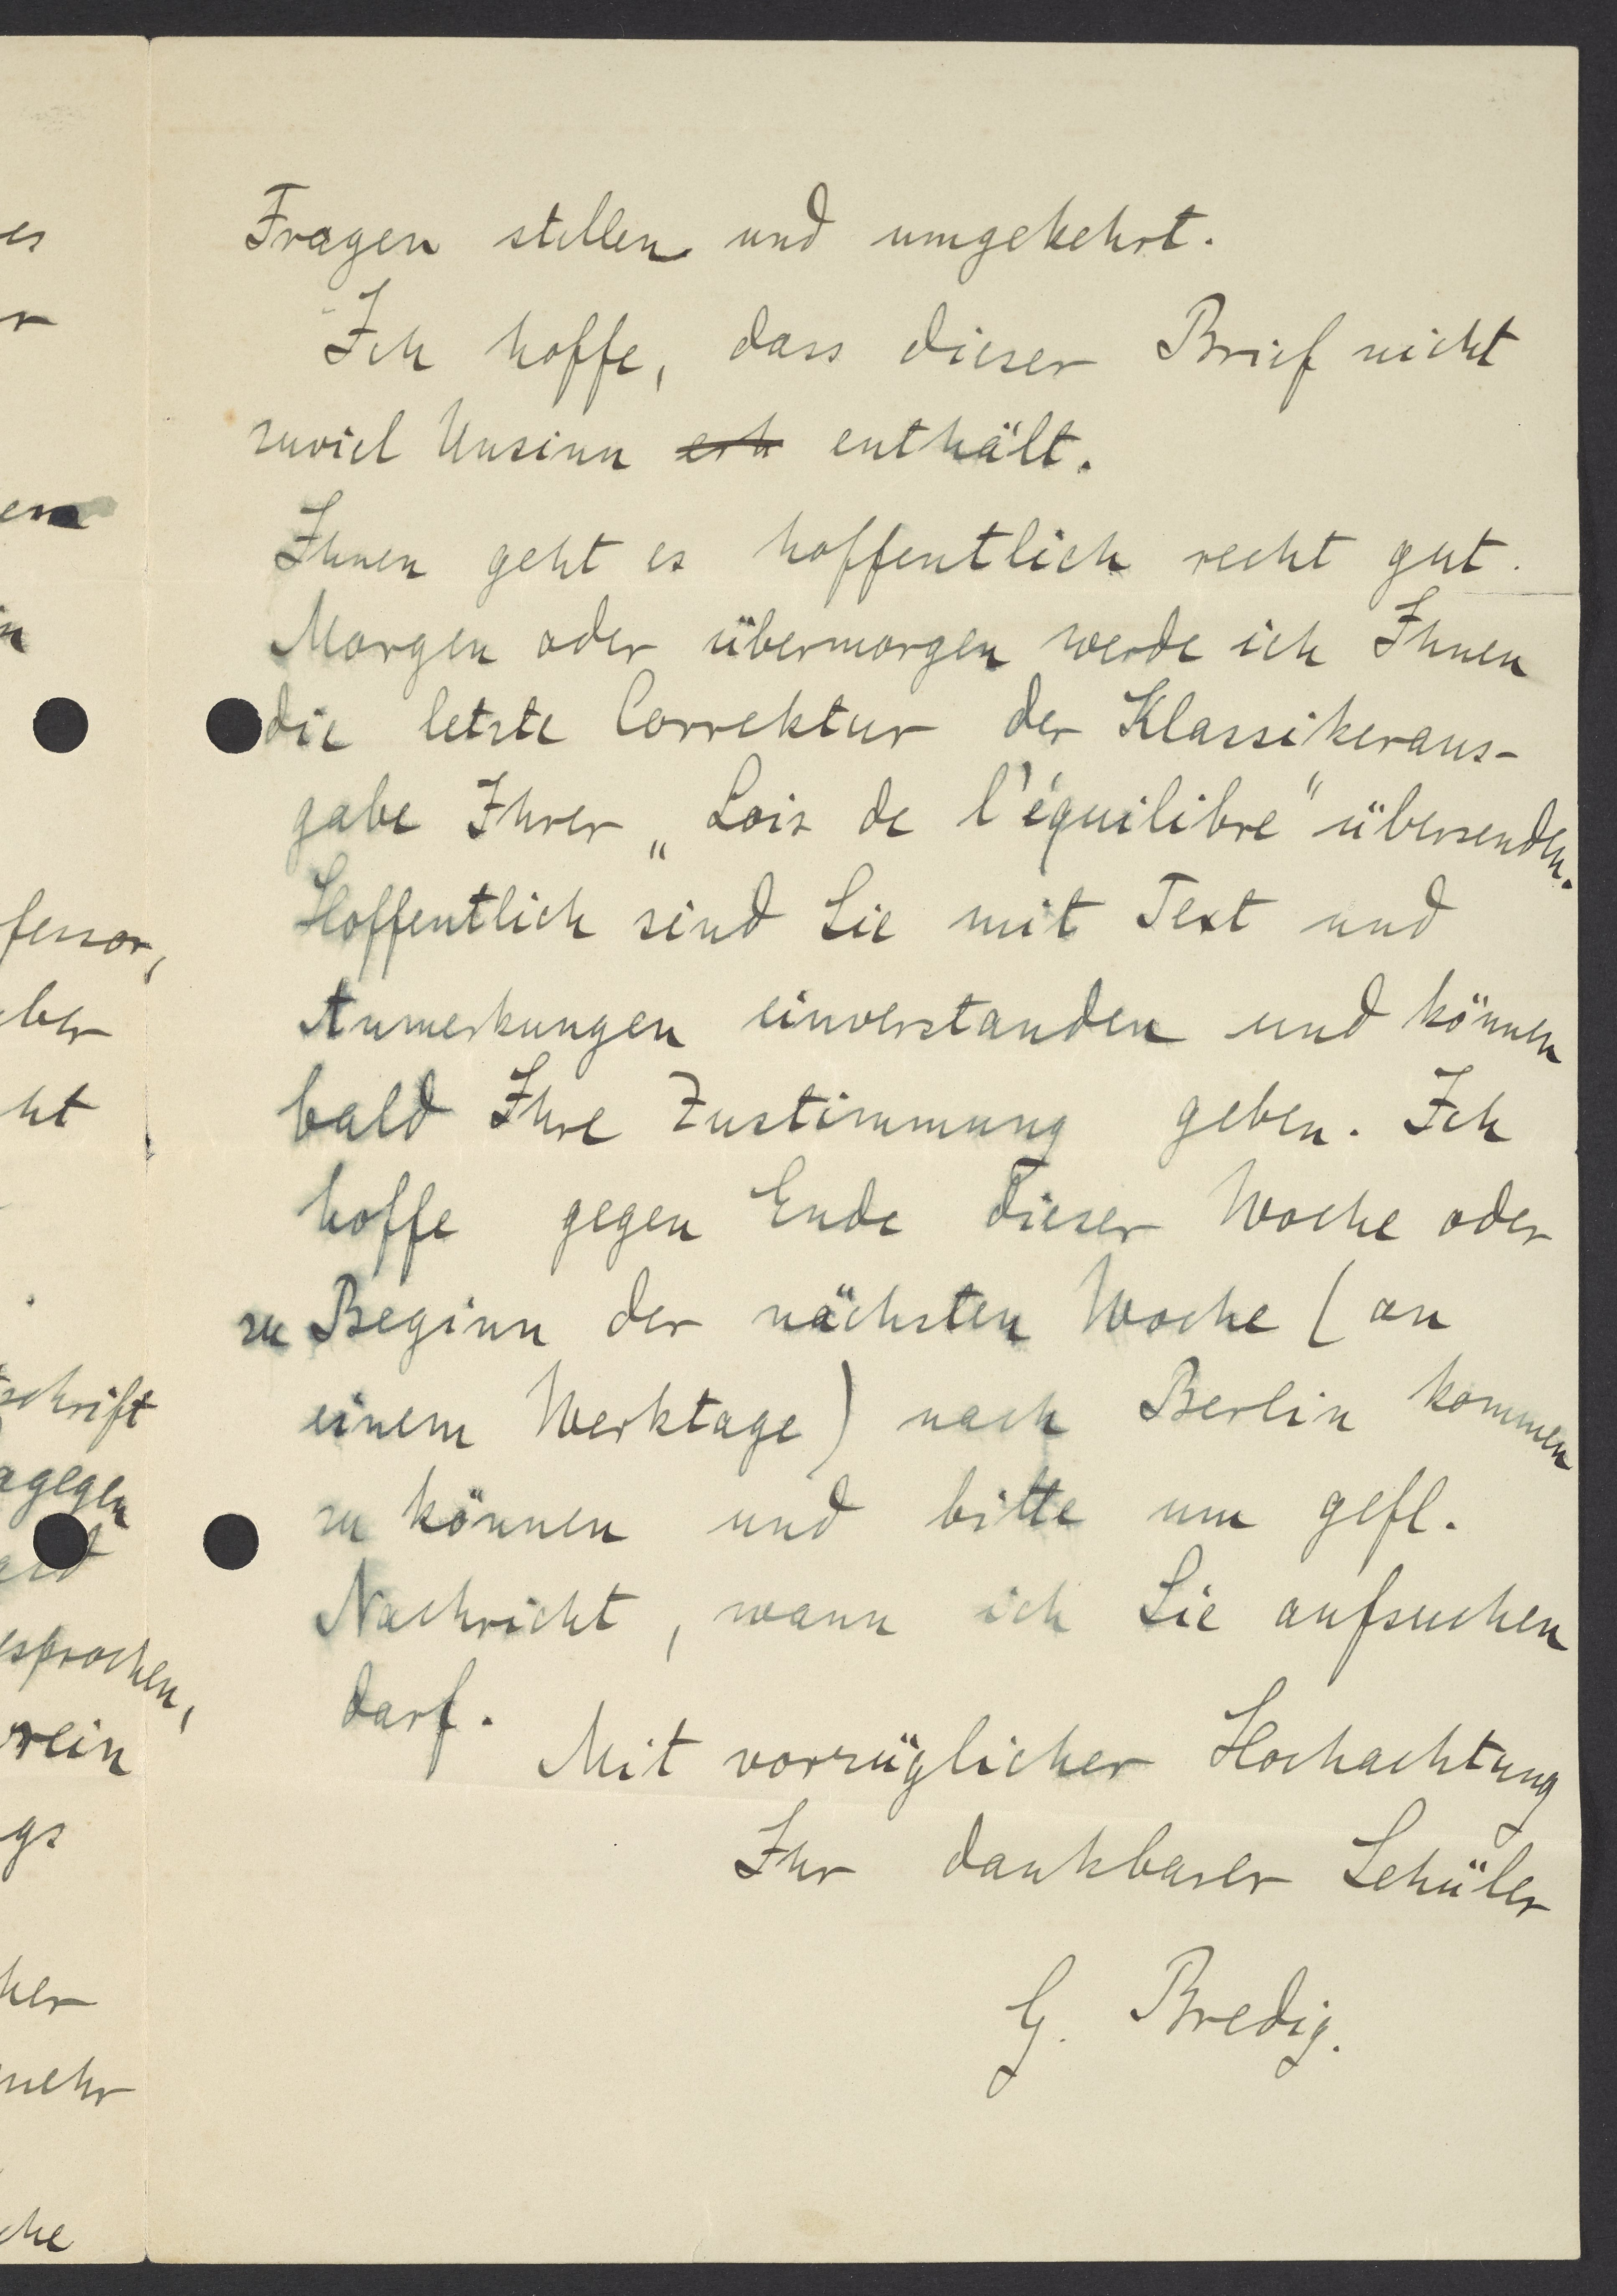 es
r
em
in
fessor,
ber
ht
schrift
agegen
esprochen,
rein
gs
her
mehr
che
Fragen stellen und umgekehrt.
Ich hoffe, dass dieser Brief nicht
zuviel Unsinn erh enthält.
Ihnen geht es hoffentlich recht gut.
Morgen oder übermorgen werde ich Ihnen
die letzte Correktur der Klassikeraus-
gabe Ihrer „Lois de l'équilibre" übersenden.
Hoffentlich sind Sie mit Text und
Anmerkungen einverstanden und können
bald Ihre Zustimmung geben. Ich
hoffe gegen Ende dieser Woche oder
zu Beginn der nächsten Woche (an
einem Werktage) nach Berlin kommen
zu können und bitte um gefl.
Nachricht, wann ich Sie aufsuchen
darf.
Mit vorzüglicher Hochachtung
Ihr dankbarer Schüler
G. Bredig.